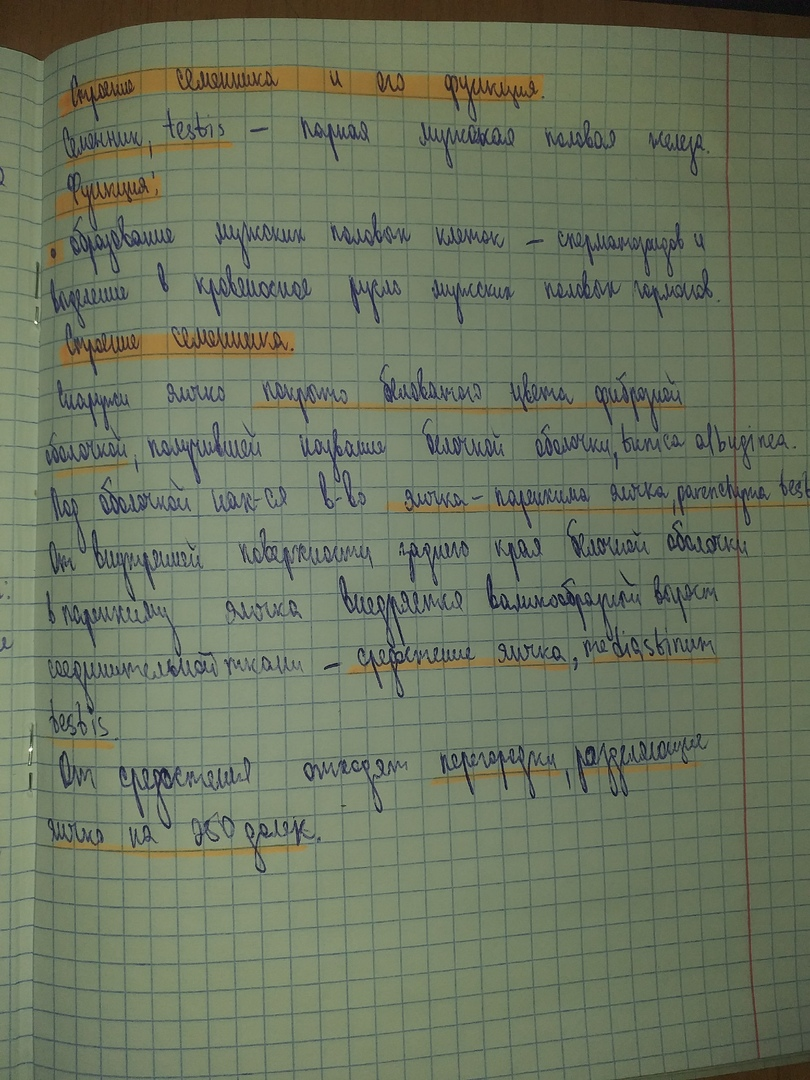 Строение семенника и его функция.
Семенник, testis — парная мужская половая железа.
Функция:
• образование мужских половых клеток — сперматозоидов и
выделение в кровеносное русло мужских половых гормонов.
Строение семенника.
Снаружи яичко покрыто беловатого цвета фиброзной
оболочкой, получившей название белочной оболочки, tunica albuginea.
Под оболочкой нах-ся в-во яичка – паренхима яичка, parenchyma test
От внутренней поверхности заднего края белочной оболочки
в паренхиму яичка внедряется валикообразный вырост
соединительной ткани – средостение яичка, mediastinum
testis.
От средостения отходят перегородки, разделяющие
яичко на 250 долек.